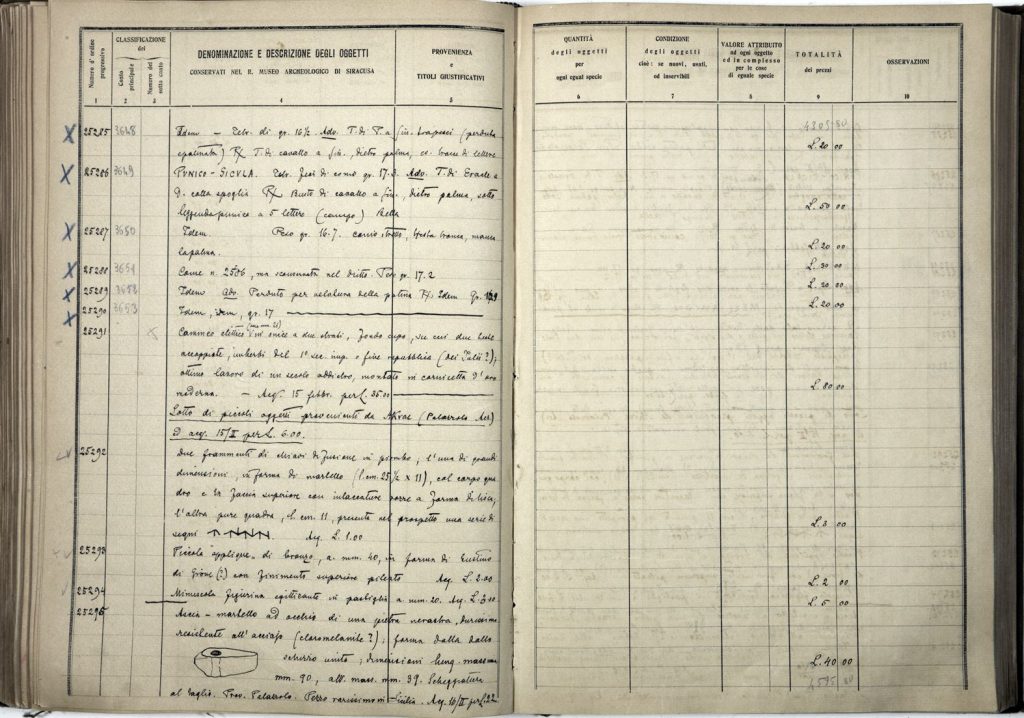 Numero d'ordine progressivo
CLASSIFICAZIONE del
Conto principale
Numero del sotto conto
DENOMINAZIONE E DESCRIZIONE DEGLI OGGETTI
CONSERVATI NEL R. MUSEO ARCHEOLOGICO DI SIRACUSA
PROVENIENZA
e
TITOLI GIUSTIFICATIVI
1 2 3 4 5
QUANTITÀ
degli oggetti
per
ogni egual specie
CONDIZIONE
degli oggetti
cioè: se nuovi, usati,
od inservibili
VALORE ATTRIBUITO
ad ogni oggetto
ed in complesso
per le cose
di eguale specie
TOTALITÀ
dei prezzi
OSSERVAZIONI
6 7 8 9 10
4305-80
25285 3648 Idem - Tetr. di gr. 16½ Adv. T. di P. a sin.
T. di cavallo a sin., dietro palma, lettere
L. 20 00
25286 3649 PUNICO-SICULA. Tetr. gr. 17.3. Adv. T. di Eracle a
d. colla spoglia R/ Busto di cavallo a sin., dietro palma, sotto
leggenda punica a 5 lettere Bella
L. 50 00
25287 3650 Idem. Peso gr. 16-7. manca
la patina.
L. 20 00
25288 3651 Come n. ma nel dritto. Peso gr. 17.2
L. 30 00
25289 Idem Adv. Perduto per della patina R/. Idem Gr.
L. 20 00
25290 3653 Idem, idem, gr. 17
L. 20 00
25291 Cammeo in onice a due strati, fondo cupo, su cui due teste
accoppiate, imberbi del 1° sec. imp. o fine repubblica
ottimo lavoro di un secolo addietro, montato in cornicetta d'oro
moderna. - Acq. 15 febbr. per L. 35.00
L. 80 00
Lotto di piccoli oggetti provenienti da Akrae
acq. 15/II per L. 6.00.
25292 Due frammenti di chiavi di fusione in piombo; l'una di grandi
dimensioni, in forma di martello (l. cm. 25½ x 11), col corpo qua
dro e superiore con
l'altra pure quadra, l. cm. 11, presenta nel prospetto una serie di
segni Acq. L. 1.00
L. 3 00
25293 Piccola "applique" di bronzo, a. mm. 40, in forma di
di con finimento superiore Acq. L. 2.00
L. 2 00
25294 Minuscola figurina egittizante in pastiglia a. mm. 20. Acq. L.
L. 5 00
25295 Ascia-martello ad occhio di una pietra nerastra, durissima
resistente all'acciaio (cloromelanite?); forma dallo
schizzo unito; dimensioni lung. massima
mm. 90, alt. mass. mm. 39. Scheggiatura
al taglio. Prov. Palazzolo. Pezzo rarissimo in Sicilia. Acq. per L. 22
L. 40 00
4595 80